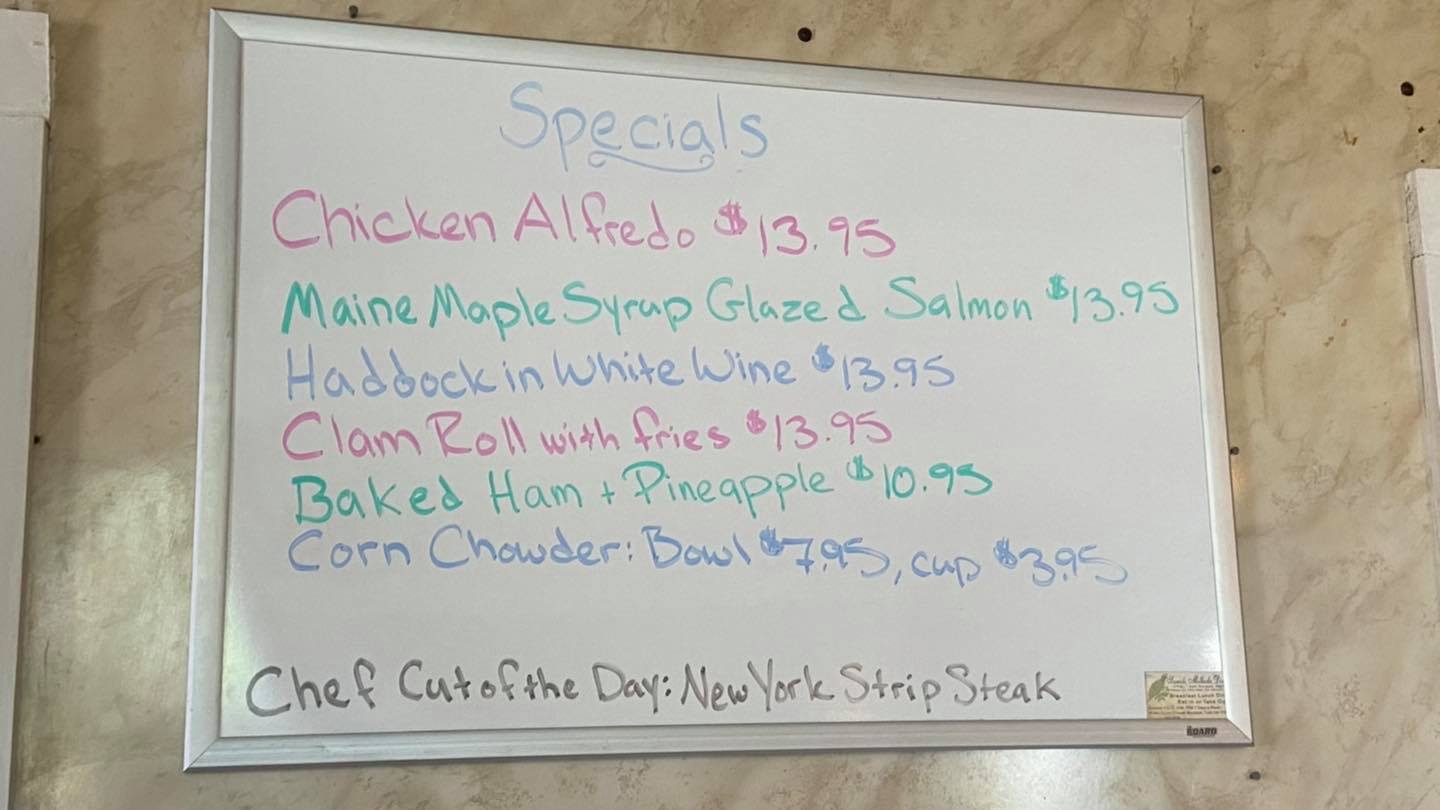 Specials
Chicken Alfredo $13.95
Maine Maple Syrup Glazed Salmon $13.95
Haddock in White Wine $13.95
Clam Roll with fries $13.95
Baked Ham + Pineapple $10.95
Corn Chowder: Bowl $7.95, cup $3.95
Chef Cut of the Day: New York Strip Steak
Breakfast Lunch
BOARD